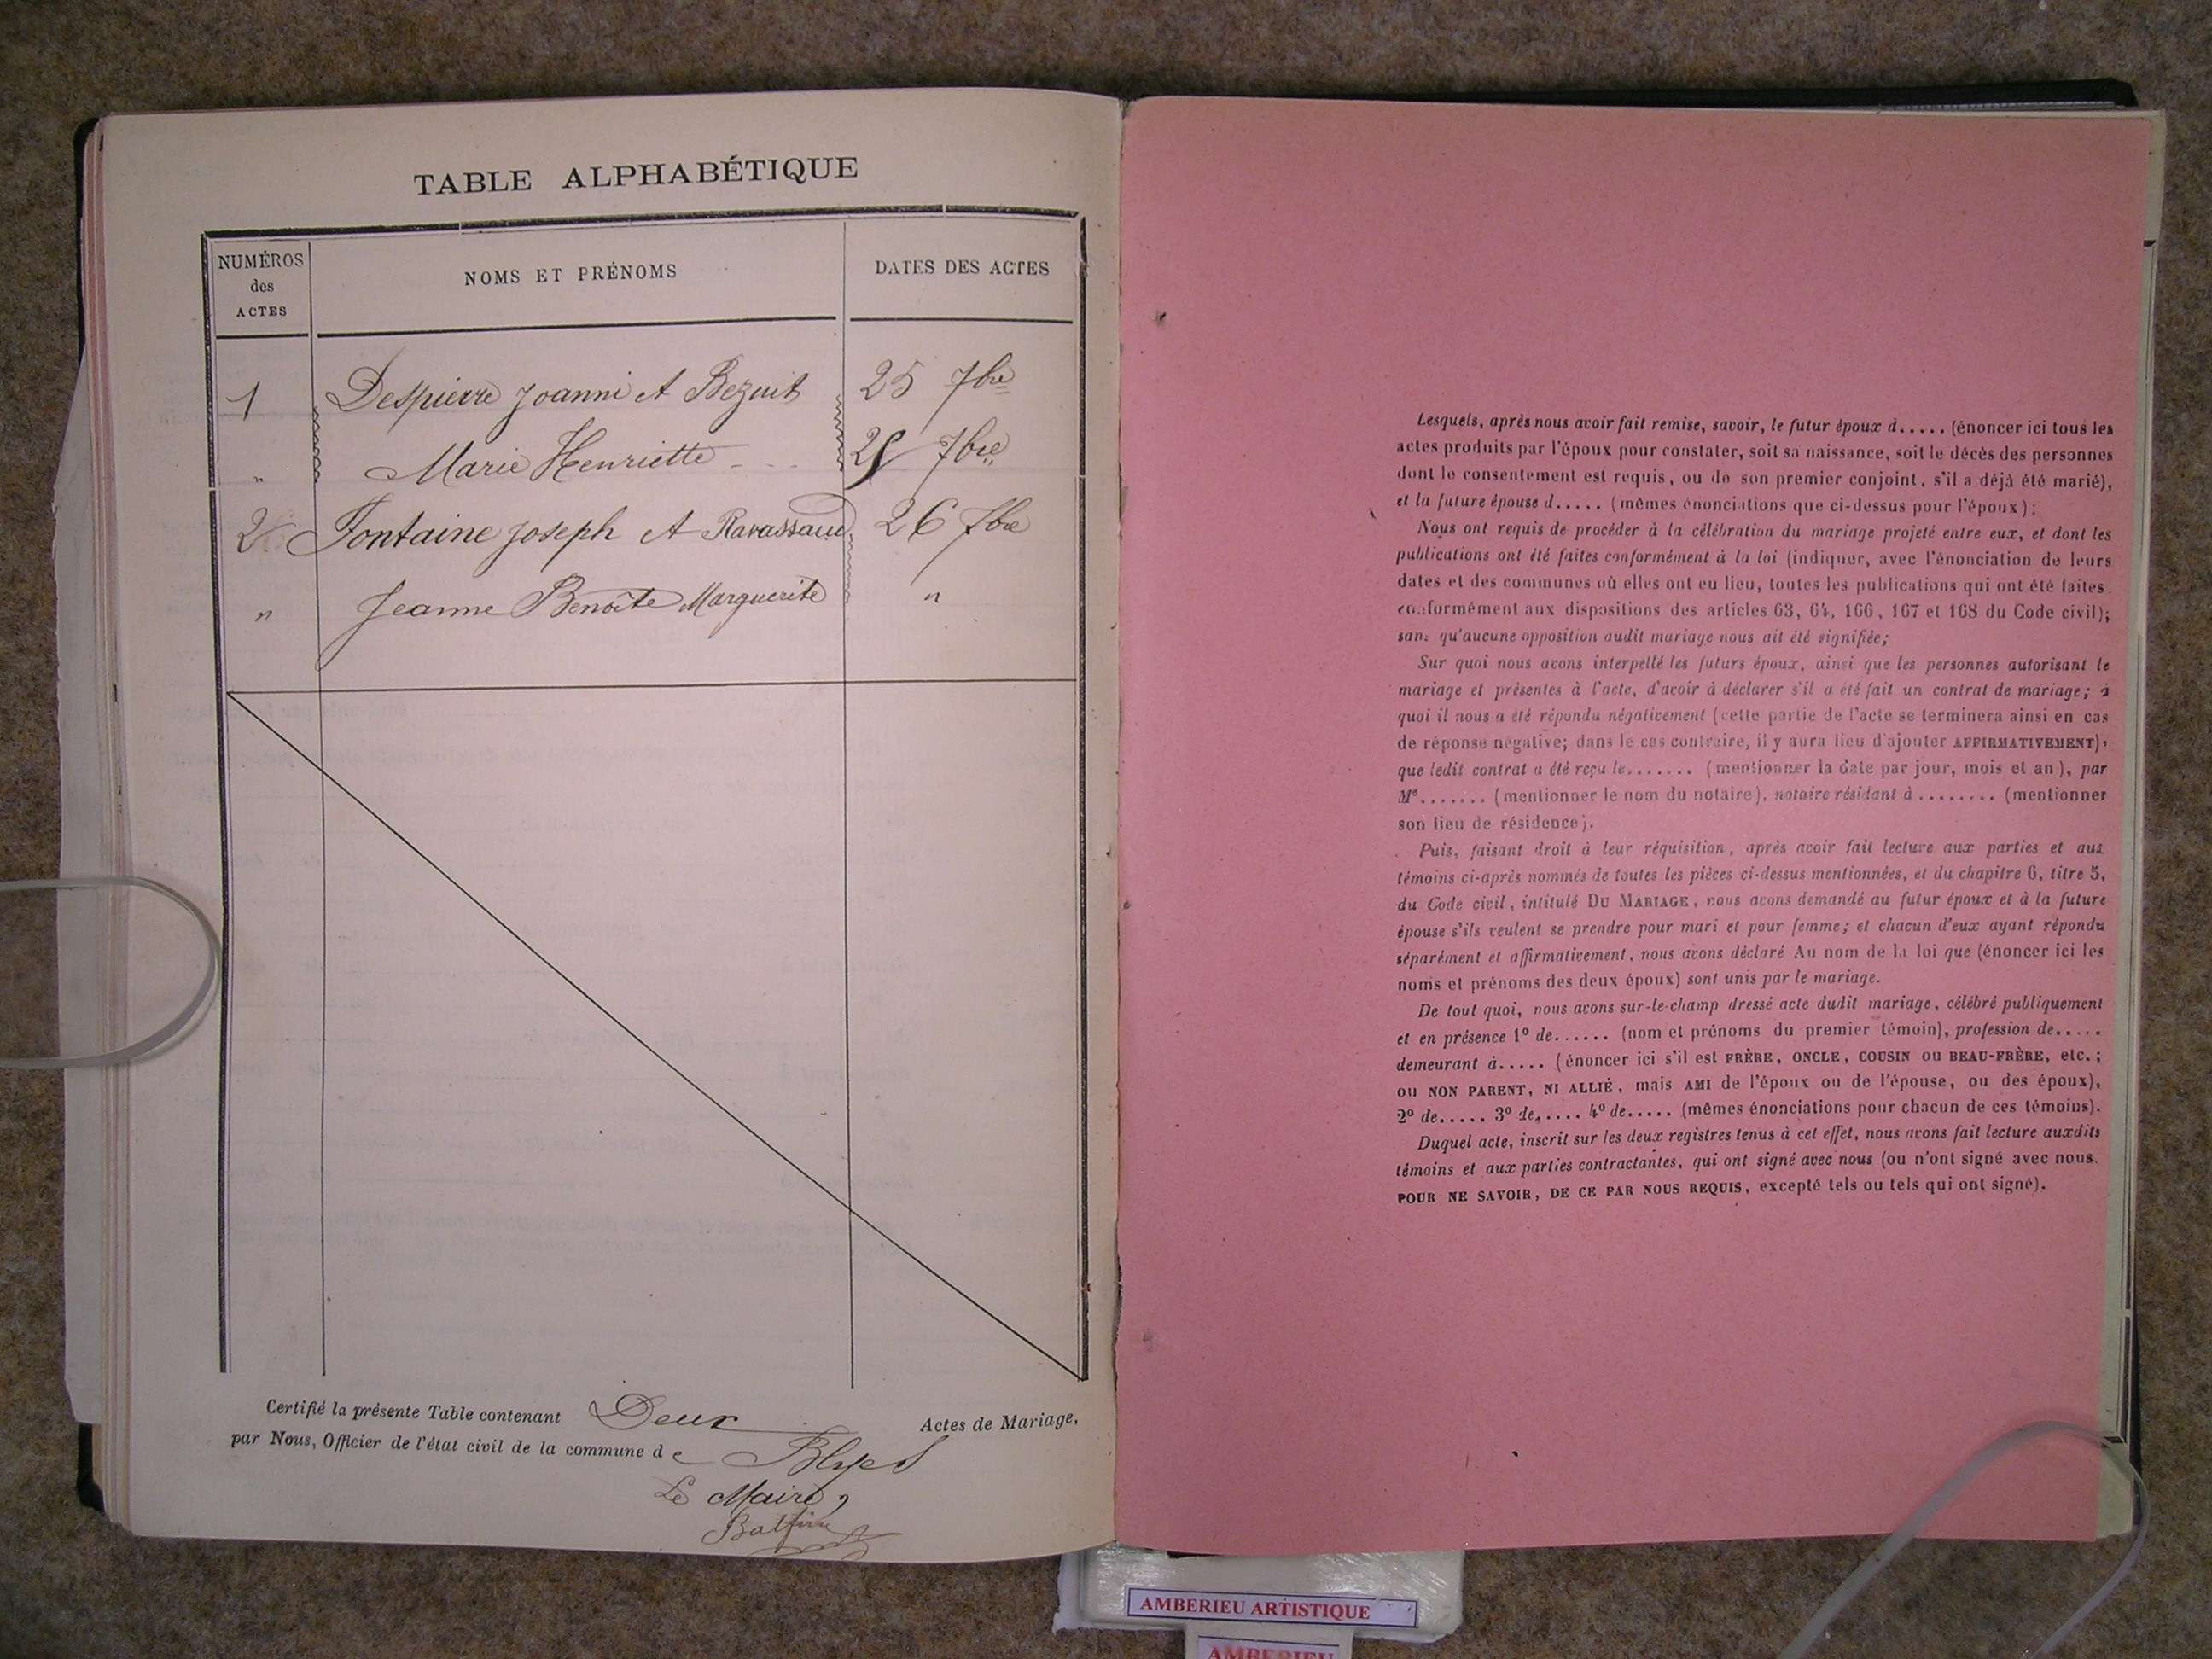 TABLE ALPHABÉTIQUE
NUMÉROS
des
ACTES
NOMS ET PRÉNOMS
DATES DES ACTES
1 Despierre Joanni et Bezuit 25 7bre
" Marie Henriette 25 7bre
2 Fontaine Joseph et Ravassaud 26 7bre
" Jeanne Benoîte Marguerite "
Certifié la présente Table contenant Deux Actes de Mariage,
par Nous, Officier de l'état civil de la commune de Blyes
Le Maire,
Lesquels, après nous avoir fait remise, savoir, le futur époux d..... (énoncer ici tous les
actes produits par l'époux pour constater, soit sa naissance, soit le décès des personnes
dont le consentement est requis, ou de son premier conjoint, s'il a déjà été marié),
et la future épouse d..... (mêmes énonciations que ci-dessus pour l'époux);
Nous ont requis de procéder à la célébration du mariage projeté entre eux, et dont les
publications ont été faites conformément à la loi (indiquer, avec l'énonciation de leurs
dates et des communes où elles ont eu lieu, toutes les publications qui ont été faites
conformément aux dispositions des articles 63, 64, 166, 167 et 168 du Code civil);
sans qu'aucune opposition audit mariage nous ait été signifiée;
Sur quoi nous avons interpellé les futurs époux, ainsi que les personnes autorisant le
mariage et présentes à l'acte, d'avoir à déclarer s'il a été fait un contrat de mariage; à
quoi il nous a été répondu négativement (cette partie de l'acte se terminera ainsi en cas
de réponse négative; dans le cas contraire, il y aura lieu d'ajouter AFFIRMATIVEMENT),
que ledit contrat a été reçu le....... (mentionner la date par jour, mois et an), par
Me....... (mentionner le nom du notaire), notaire résidant à ........ (mentionner
son lieu de résidence).
Puis, faisant droit à leur réquisition, après avoir fait lecture aux parties et aux
témoins ci-après nommés de toutes les pièces ci-dessus mentionnées, et du chapitre 6, titre 5,
du Code civil, intitulé DU MARIAGE, nous avons demandé au futur époux et à la future
épouse s'ils veulent se prendre pour mari et pour femme; et chacun d'eux ayant répondu
séparément et affirmativement, nous avons déclaré Au nom de la loi que (énoncer ici les
noms et prénoms des deux époux) sont unis par le mariage.
De tout quoi, nous avons sur-le-champ dressé acte dudit mariage, célébré publiquement
et en présence 1º de...... (nom et prénoms du premier témoin), profession de.....
demeurant à..... (énoncer ici s'il est FRÈRE, ONCLE, COUSIN ou BEAU-FRÈRE, etc.;
ou NON PARENT, NI ALLIÉ, mais AMI de l'époux ou de l'épouse, ou des époux),
2º de..... 3º de..... 4º de..... (mêmes énonciations pour chacun de ces témoins).
Duquel acte, inscrit sur les deux registres tenus à cet effet, nous avons fait lecture auxdits
témoins et aux parties contractantes, qui ont signé avec nous (ou n'ont signé avec nous.
POUR NE SAVOIR, DE CE PAR NOUS REQUIS, excepté tels ou tels qui ont signé).
AMBERIEU ARTISTIQUE
AMBERIEU